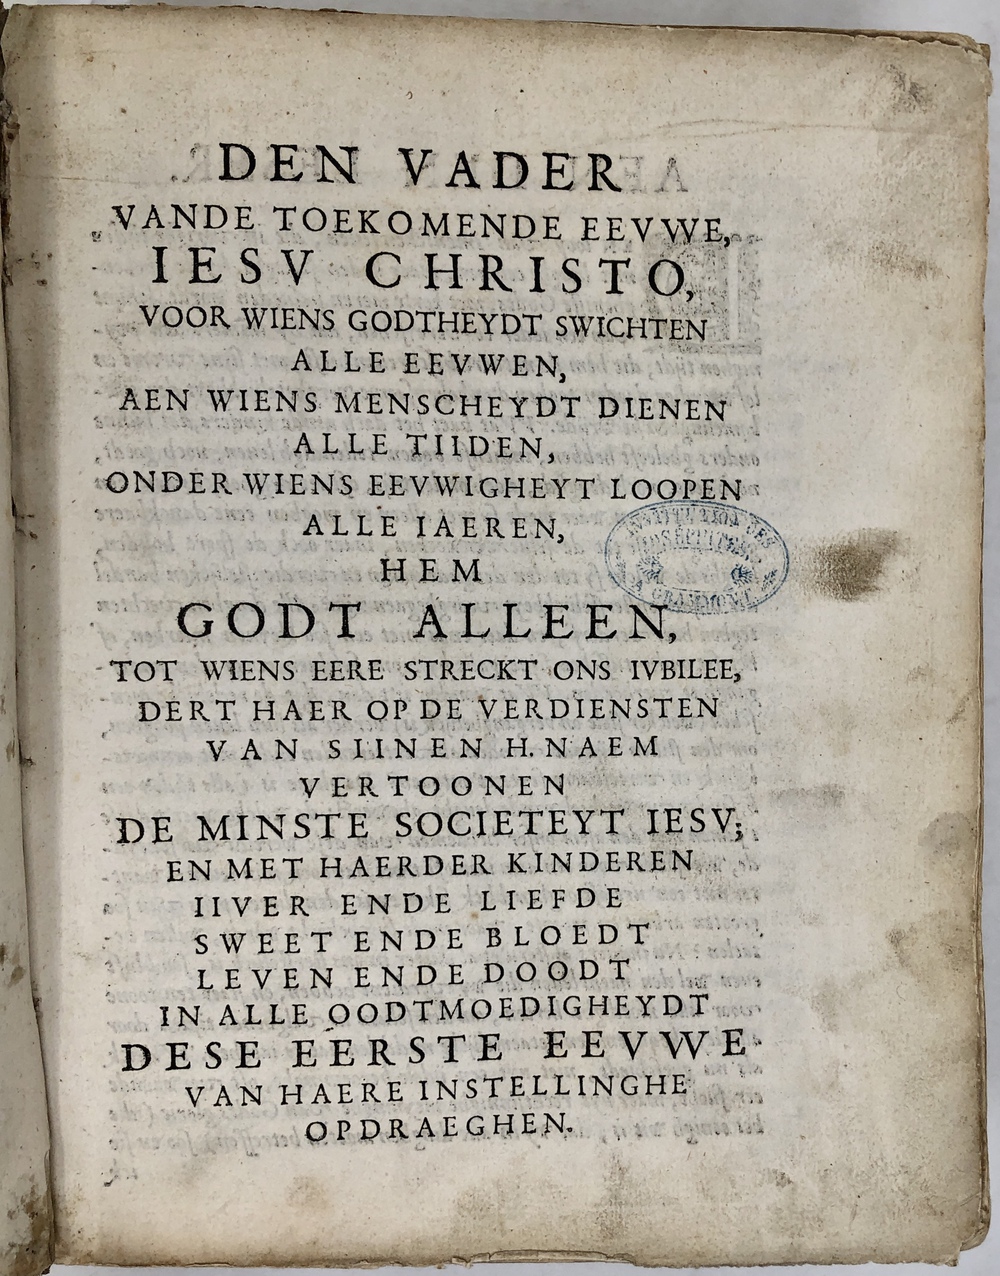 DEN VADER
VANDE TOEKOMENDE EEVWE,
IESV CHRISTO,
VOOR WIENS GODTHEYDT SWICHTEN
ALLE EEVWEN,
AEN WIENS MENSCHEYDT DIENEN
ALLE TIIDEN,
ONDER WIENS EEVWIGHEYT LOOPEN
ALLE IAEREN,
HEM
GODT ALLEEN,
TOT WIENS EERE STRECKT ONS IVBILEE,
DERT HAER OP DE VERDIENSTEN
VAN SIINEN H. NAEM
VERTOONEN
DE MINSTE SOCIETEYT IESV;
EN MET HAERDER KINDEREN
IIVER ENDE LIEFDE
SWEET ENDE BLOEDT
LEVEN ENDE DOODT
IN ALLE OODTMOEDIGHEYDT
DESE EERSTE EEVWE
VAN HAERE INSTELLINGHE
OPDRAEGHEN.